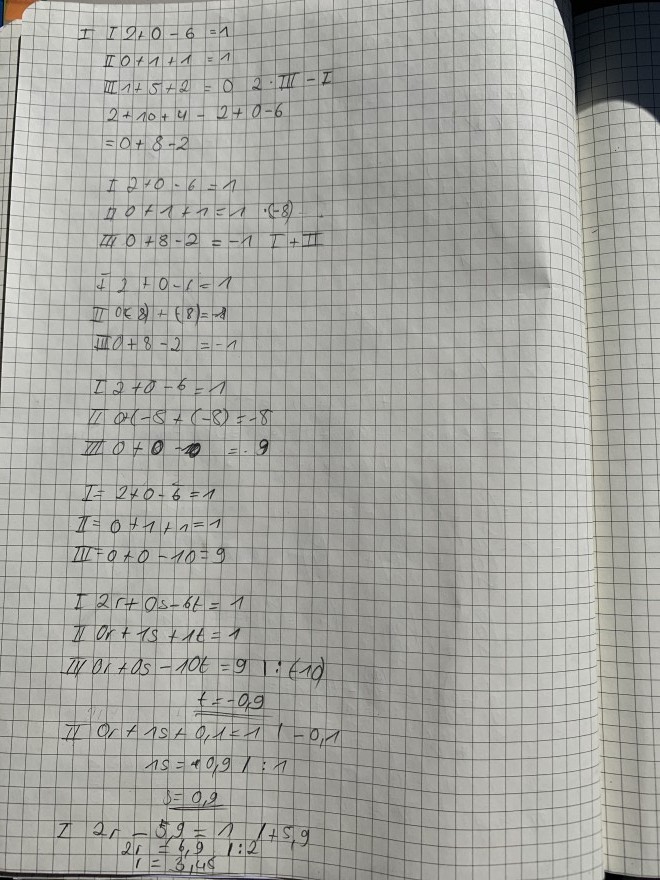 I I 2+0-6 =1
II 0+1+1 =1
III 1+5+2 = 0 2·III - I
2+10+4 - 2+0-6
=0+8-2
I 2+0-6 =1
II 0+1+1=1 ·(-8)
III 0+8-2 = -1 I+II
I 2 +0-6=1
II 0(-8) + (-8)=-8
III 0+8-2 =-1
I 2+0-6=1
II 0+(-8 + (-8)=-8
III 0+0-10 =-9
I= 2+0-6=1
II= 0+1+1=1
III=0+0-10=9
I 2r+0s-6t=1
II 0r+1s+1t=1
III 0r+0s-10t=9 |:(-10)
t=-0,9
II 0r+1s+0,1=1 | -0,1
1s= 0,9 | :1
s= 0,9
I 2r - 5,9 = 1 | +5,9
2r = 6,9 | :2
r = 3,45